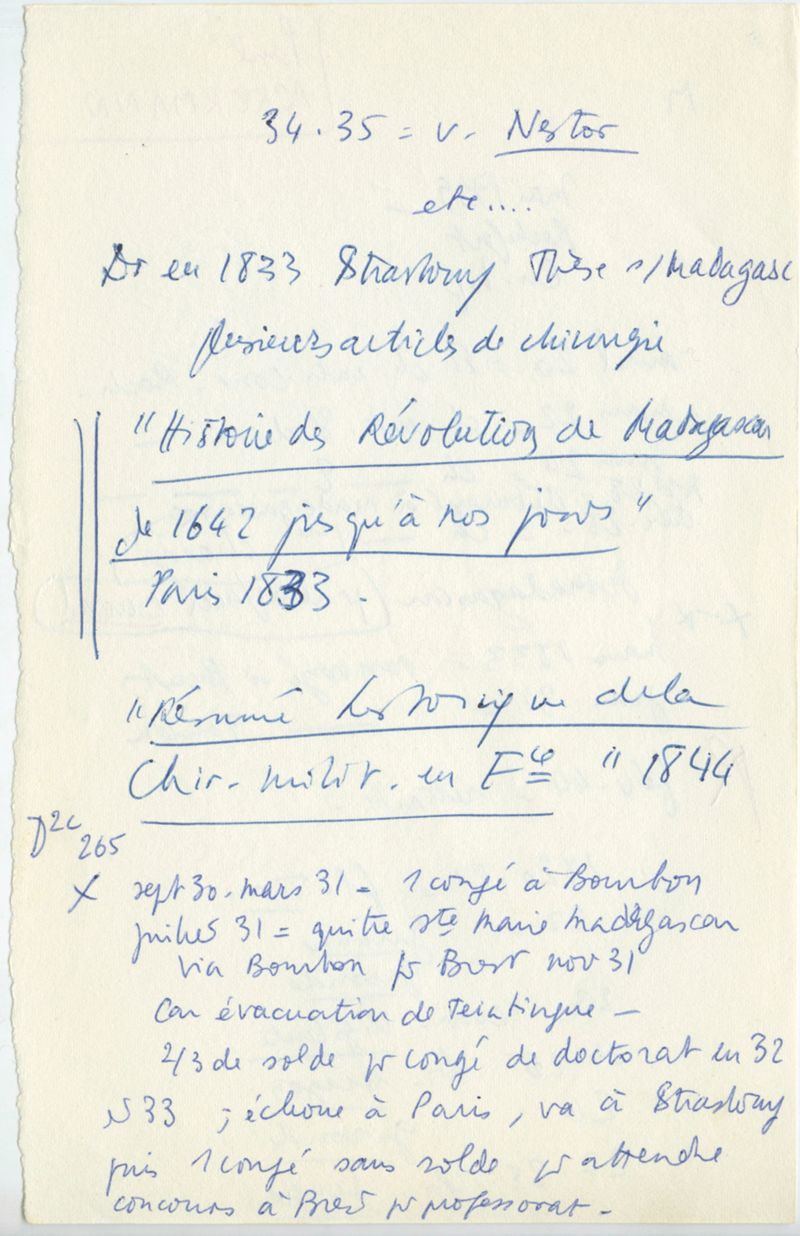 34.35 = v. Nestor
etc....
Dr en 1833 Strasbourg Thèse s/Madagasc
plusieurs articles de chirurgie
"Histoire des Révolutions de Madagascar
de 1642 jusqu'à nos jours"
Paris 1833.
"Résumé historique de la
Chir. milit. en Fce" 1844
D2c
265
X sept 30. mars 31 = 1 congé à Bourbon
juillet 31 = quitte Ste Marie Madagascar
via Bourbon pr Brest nov 31
car évacuation de Teintingue —
2/3 de solde pr congé de doctorat en 32
33 ; échoue à Paris, va à Strasbourg
puis 1 congé sans solde pr attendre
concours à Brest pr professorat.